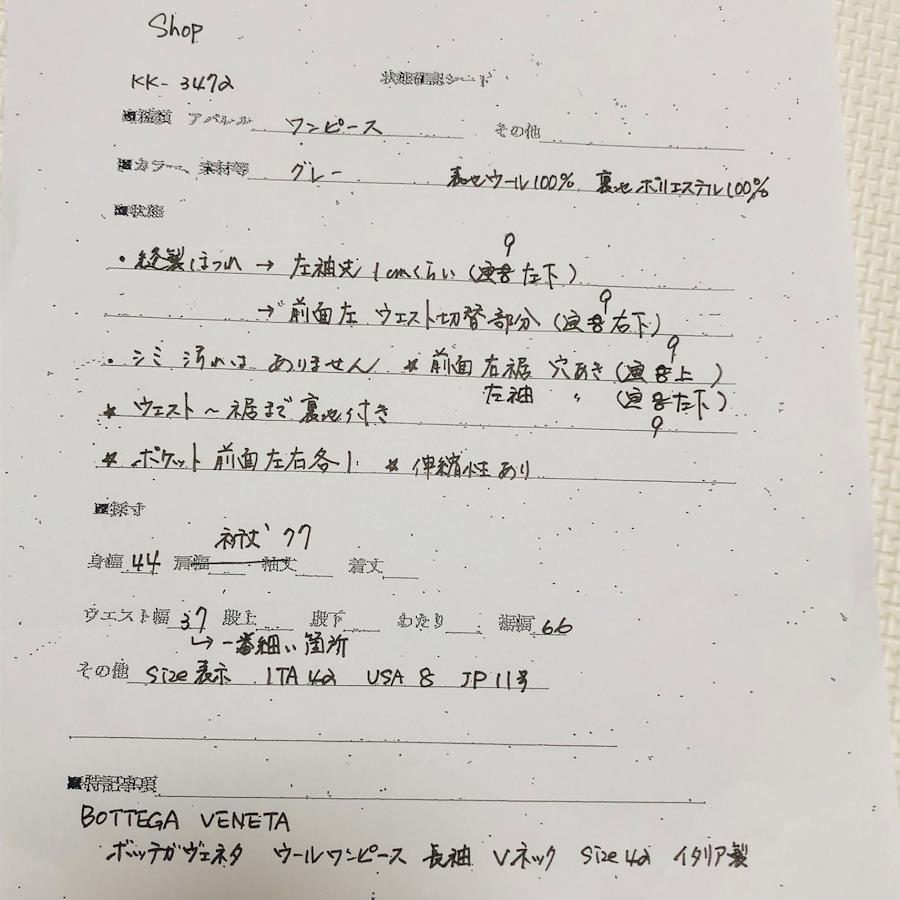 Shop
KK-3472 状態確認シート
■種類 アパレル ワンピース その他
■カラー、素材等 グレー 表地ウール100% 裏地ポリエステル100%
■状態
9
・縫製ほつれ → 左袖先 1cmくらい (画像左下)
9
→ 前面左 ウエスト切替部分 (画像右下)
9
・シミ 汚れは ありません ☆前面右裾 穴あき (画像上)
左袖 〃 (画像左下)
☆ ウエスト〜裾まで裏地付き
9
☆ ポケット 前面左右各1 ☆ 伸縮性あり
■採寸
裄丈 77
身幅 44 肩幅 袖丈 着丈
ウエスト幅 37 股上 股下 わたり 裾幅 66
↳ 一番細い箇所
その他 size表示 ITA 42 USA 8 JP 11号
■特記事項
BOTTEGA VENETA
ボッテガヴェネタ ウールワンピース 長袖 Vネック size42 イタリア製